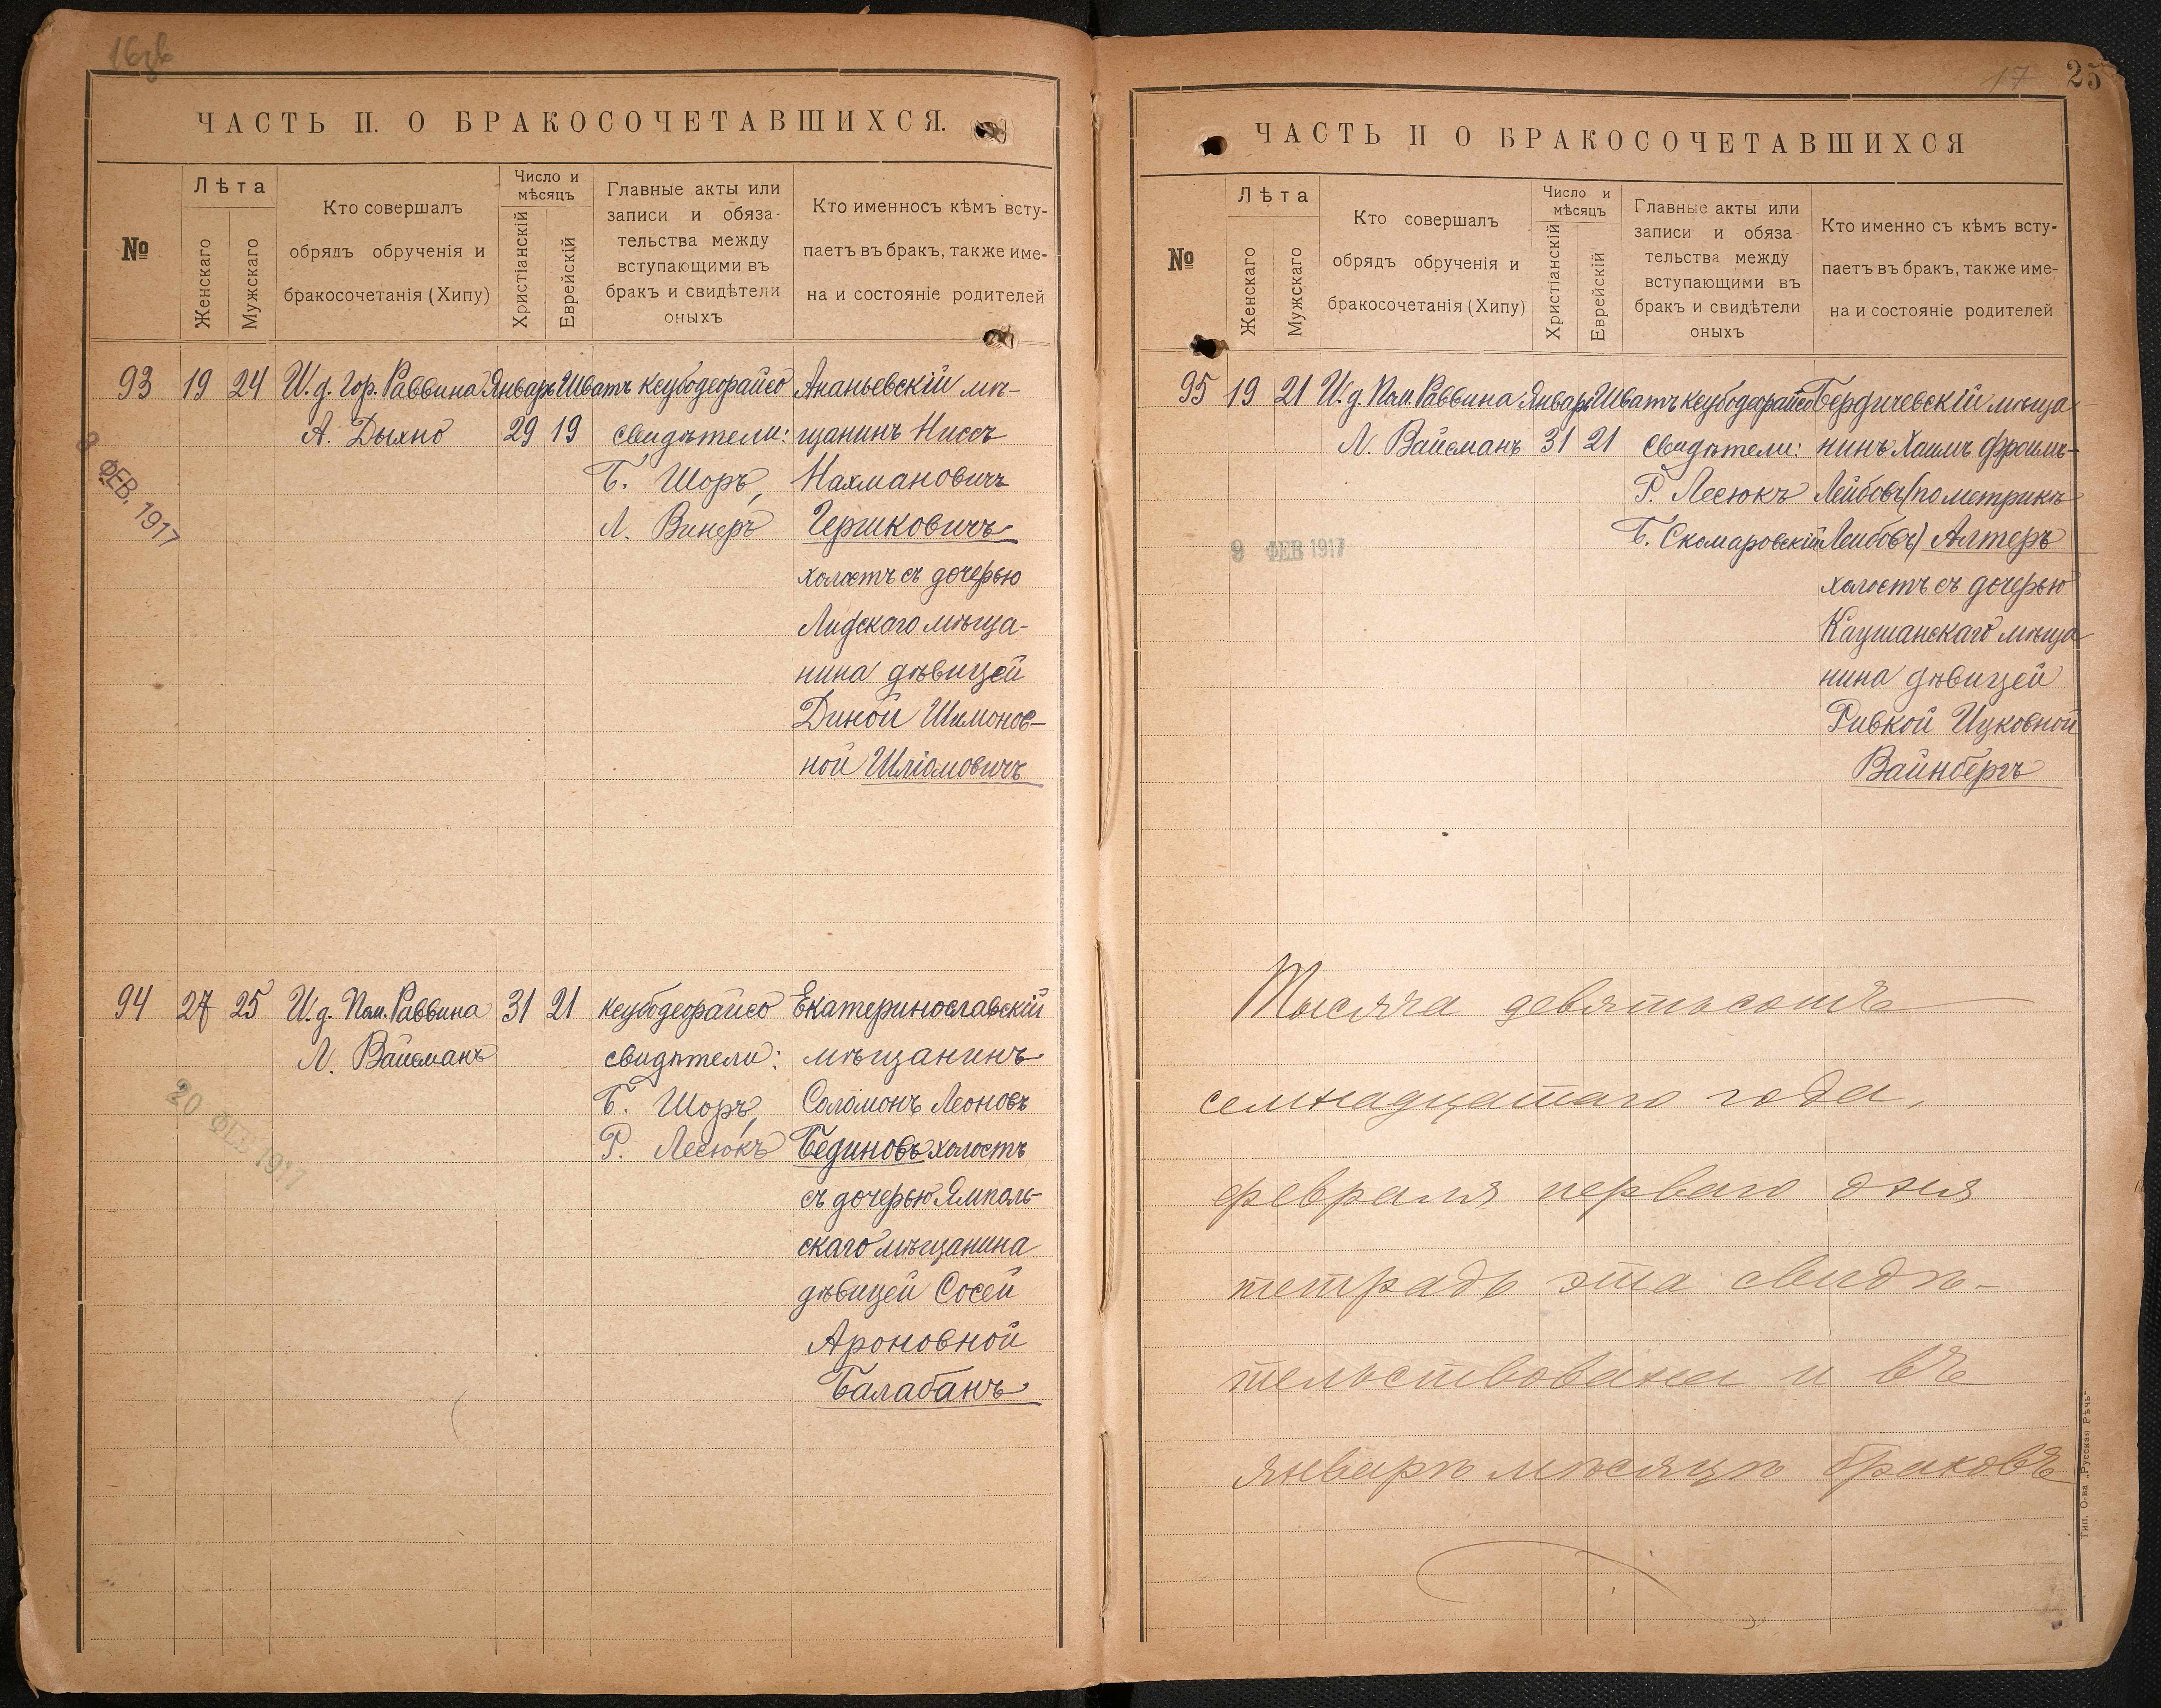 16 об
ЧАСТЬ II. О БРАКОСОЧЕТАВШИХСЯ.
№
Лѣта
Женскаго
Мужскаго
Кто совершалъ
обрядъ обрученія и
бракосочетанія (Хипу)
Число и
мѣсяцъ
Христіанскій
Еврейскій
Главные акты или
записи и обяза-
тельства между
вступающими въ
бракъ и свидѣтели
оныхъ
Кто именносъ кѣмъ всту-
паетъ въ бракъ, также име-
на и состояніе родителей
93 19 24 И.д. Гор. Раввина Январь Шватъ ксубодеорайсо Ананьевскій мѣ-
А. Дыхно 29 19 свидѣтели: щанинъ Нисъ
Б. Шоръ, Нахмановичъ
Л. Винеръ Гершковичъ
холостъ съ дочерью
Лидскаго мѣща-
нина дѣвицей
Диной Шимонов-
ной Шліомовичъ
9 ФЕВ. 1917
94 27 25 И.д. Пом. Раввина 31 21 ксубодеорайсо Екатеринославскій
Л. Вайсманъ свидѣтели: мѣщанинъ
Б. Шоръ, Соломонъ Леоновъ
Р. Лесюкъ Бединовъ холостъ
съ дочерью Ямполь-
скаго мѣщанина
дѣвицей Сосей
Ароновной
Балабанъ
20 ФЕВ 1917
17 25
ЧАСТЬ II О БРАКОСОЧЕТАВШИХСЯ
№
Лѣта
Женскаго
Мужскаго
Кто совершалъ
обрядъ обрученія и
бракосочетанія (Хипу)
Число и
мѣсяцъ
Христіанскій
Еврейскій
Главные акты или
записи и обяза
тельства между
вступающими въ
бракъ и свидѣтели
оныхъ
Кто именно съ кѣмъ всту-
паетъ въ бракъ, также име-
на и состояніе родителей
95 19 21 И.д. Пом. Раввина Январь Шватъ ксубодеорайсо Бердичевскій мѣща
Л. Вайсманъ 31 21 Свидѣтели: нинъ Хаимъ Фроимъ-
Р. Лесюкъ Лейбовъ (по метрикѣ
Б. Скомаровскій Лейбовъ) Алтеръ
холостъ съ дочерью
Каушанскаго мѣща
нина дѣвицей
Ривкой Ицковной
Вайнбергъ
9 ФЕВ 1917
Тысяча девятьсотъ
семнадцатаго года,
февраля перваго дня
тетрадь эта свидѣ-
тельствована и въ
январѣ мѣсяцѣ браковъ
Тип. О-ва „Русская Рѣчь"